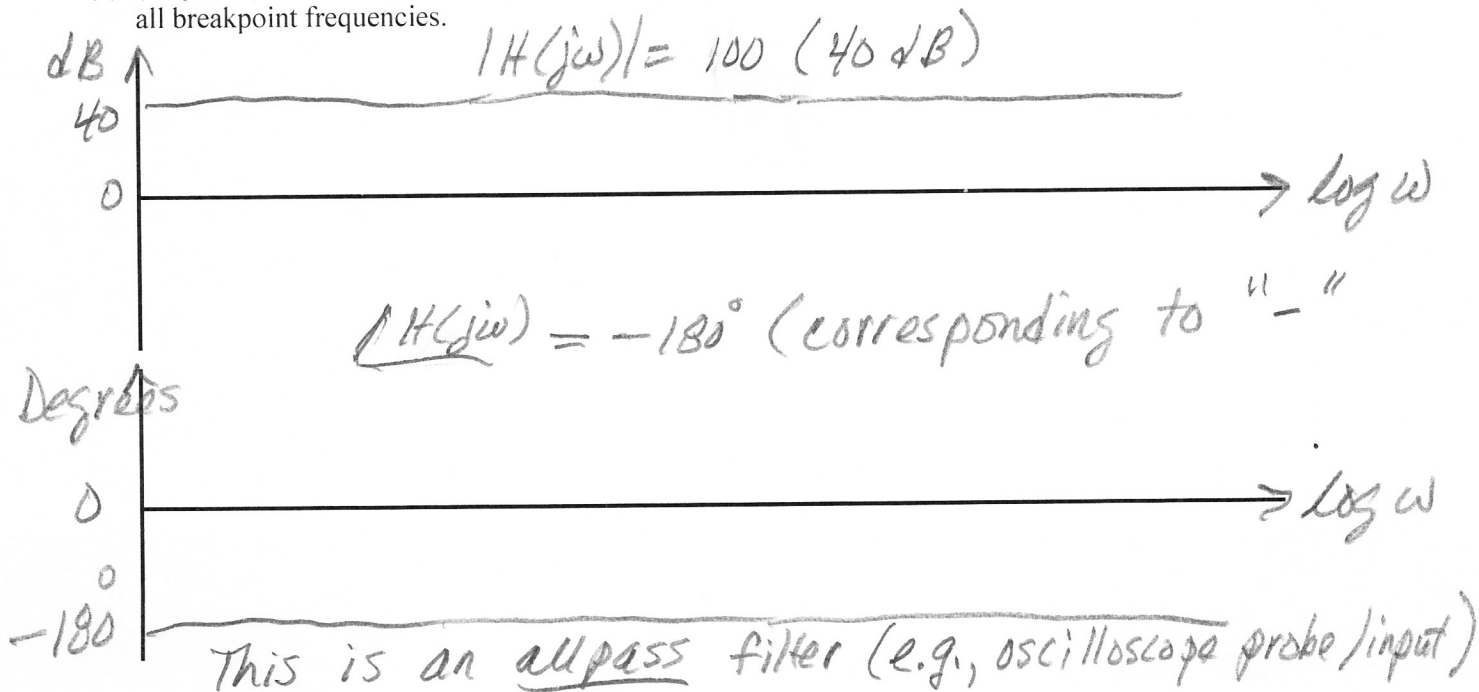 all breakpoint frequencies.
dB
|H(jω)| = 100 (40 dB)
40
0
log ω
∠H(jω) = -180° (corresponding to "-"
Degrees
0
log ω
-180°
This is an allpass filter (e.g., oscilloscope probe/input)